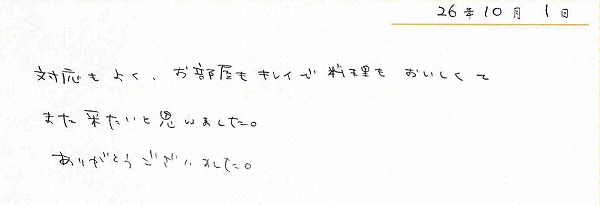 26年10月1日
対応もよく、お部屋もキレイで料理もおいしくて
また来たいと思いました。
ありがとうございました。